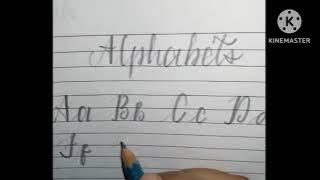 KINEMASTER
Alphabets
Aa Bb Cc Dd
Ff